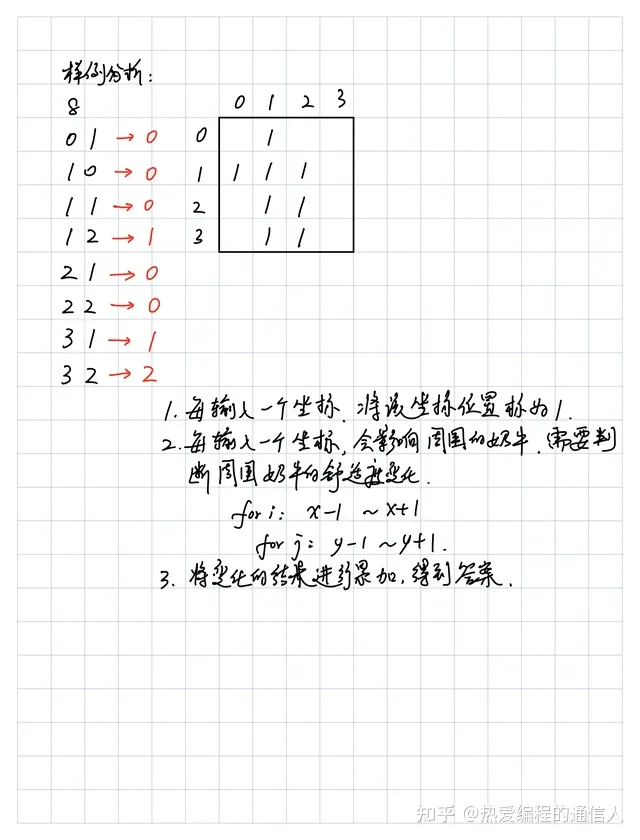 样例分析：
8
0 1 → 0
1 0 → 0
1 1 → 0
1 2 → 1
2 1 → 0
2 2 → 0
3 1 → 1
3 2 → 2
0 1 2 3
0 1
1 1 1 1
2 1 1
3 1 1
1. 每输入一个坐标，将该坐标位置标为1.
2. 每输入一个坐标，会影响周围的奶牛，需要判
断周围奶牛的舒适度变化.
for i: x-1 ~ x+1
for j: y-1 ~ y+1.
3. 将变化的结果进行累加，得到答案.
知乎 @热爱编程的通信人